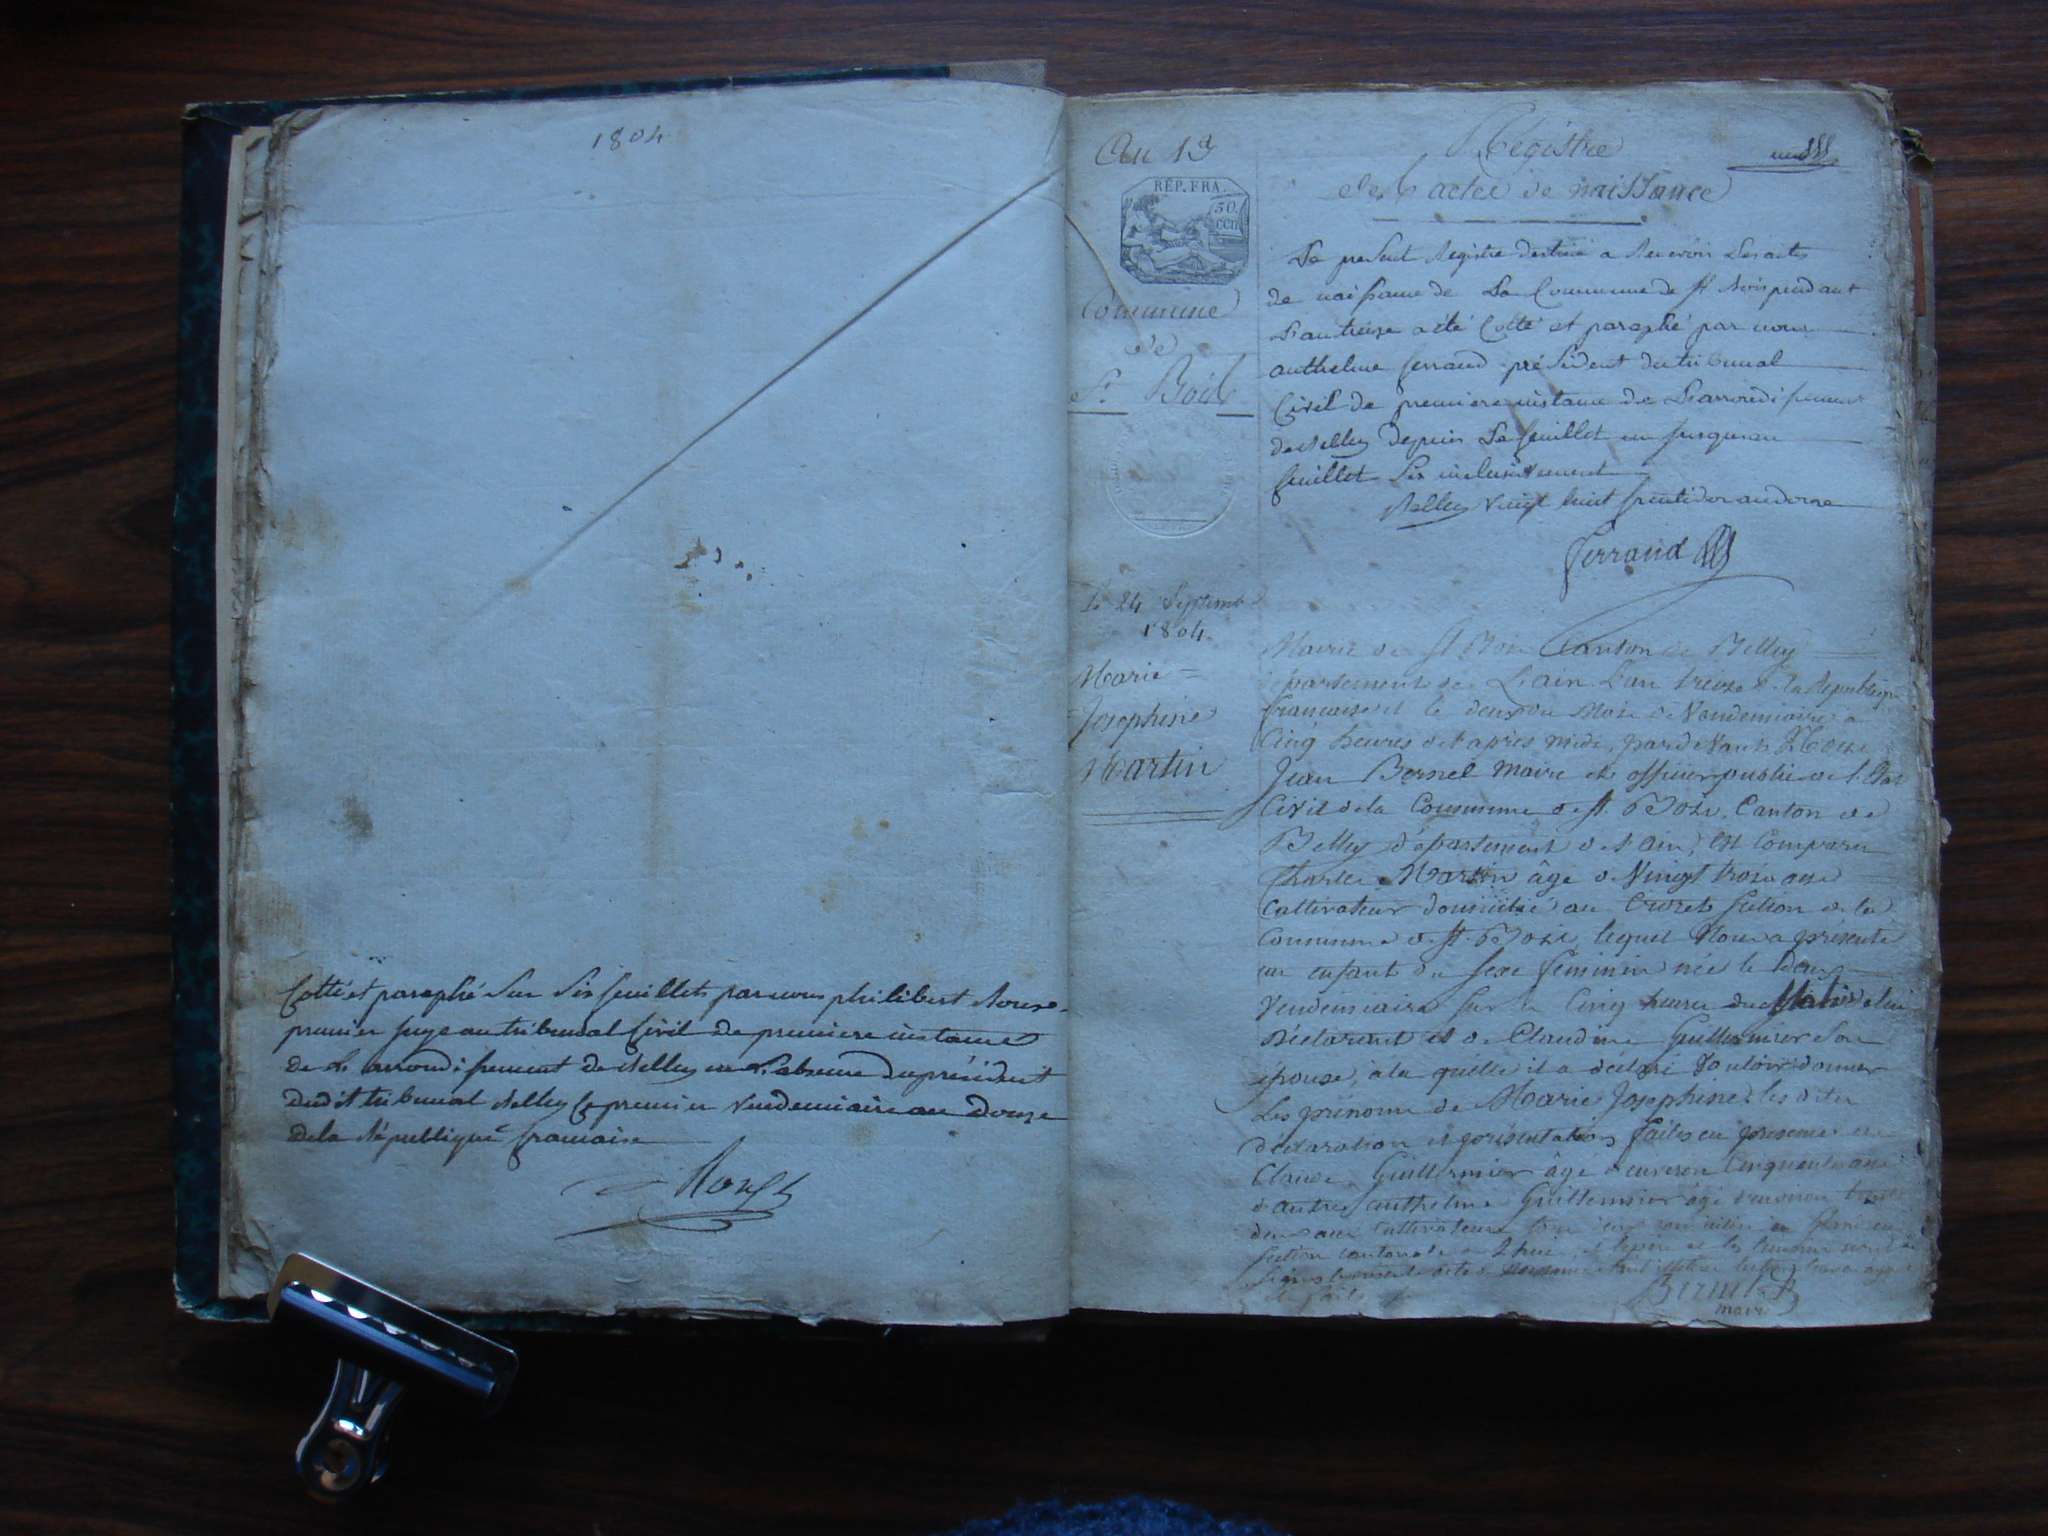 1804
Cotté et paraphé sur six feuillets par nous philibert Rouse
premier juge au tribunal Civil de premiere instance
de L'arrondissement de Belley en L'absence du président
dudit tribunal Belley Le premier vendemiaire an douze
de la République francaise
An 13
REP. FRA.
50.
CEN
Commune
de
St Bois
Le 24 Septembre
1804
Marie
Josephine
Martin
Registre
des actes de naissance
Le present Registre destiné a Recevoir Les actes
de naissance de La Commune de st Bois pendant
L'an treize a été Cotté et paraphé par nous
anthelme ferrand président du tribunal
Civil de premiere instance de L'arrondissement
de Belley depuis Le feuillet un jusqu'au
feuillet six inclusivement
Belley vingt huit fructidor an douze
ferrand
Mairie de st Bois Canton de Belley
département de L'ain L'an treize de la République
francaise et le deux du Mois de Vendemiaire a
Cinq heures de l'après midi, pardevant Nous
Jean Bernel Maire et officier public de l'état
Civil de la Commune de st. Bois, Canton de
Belley département de l'ain, est Comparu
Charles Martin âge de Vingt trois ans
Cultivateur domicilié au Crozet section de la
Commune de st. Bois, lequel Nous a présenté
un enfant du sexe feminin née le deux
Vendemiaire sur les Cinq heures du Matin de lui
Déclarant et de Claudine Guillermier son
épouse, à la quelle il a déclaré Vouloir donner
Les prénoms de Marie Josephine les dites
déclaration et présentation faites en présence de
Claude Guillermier âgé d'environ Cinquante ans
d'autre anthelme Guillermier âgé d'environ trente
deux ans Cultivateurs
Bernel
maire